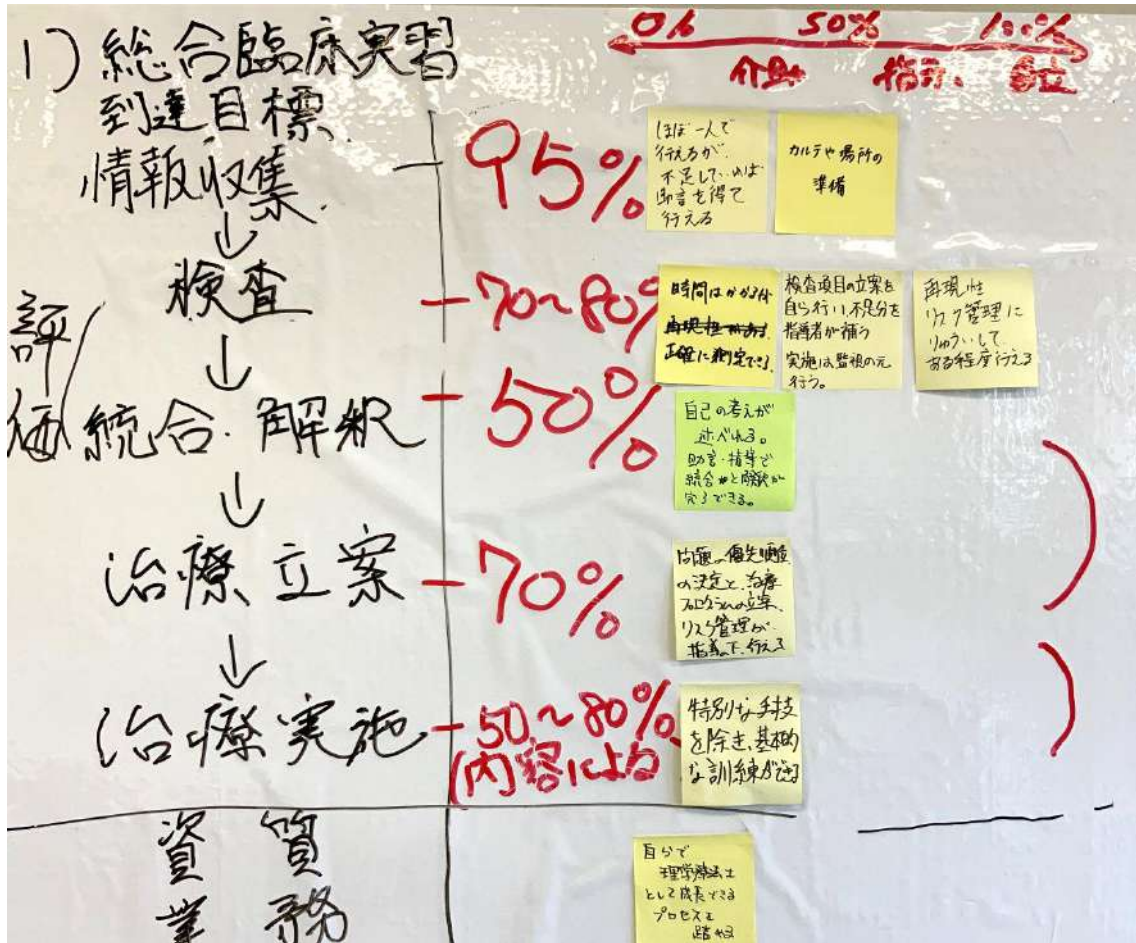 1) 総合臨床実習
到達目標
0% 50% 100%
介助 指示 自立
情報収集
95%
ほぼ一人で
行えるが、
不足していれば
助言を得て
行える
カルテや場所の
準備
評価
検査
70~80%
時間はかかるが
再現性があり
正確に測定できる
検査項目の立案を
自ら行い、不足分を
指導者が補う
実施は監視の元
行う。
再現性
リスク管理に
りゅういして
ある程度行える
統合・解釈
50%
自己の考えが
述べれる。
助言・指導で
統合と解釈が
完了できる。
治療立案
70%
問題の優先順位
の決定と、治療
プログラムの立案、
リスク管理が
指導の下、行える
治療実施
50~80%
(内容による)
特別な手技
を除き、基本的
な訓練が
資質
業務
自分で
理学療法士
として成長できる
プロセスを
踏める